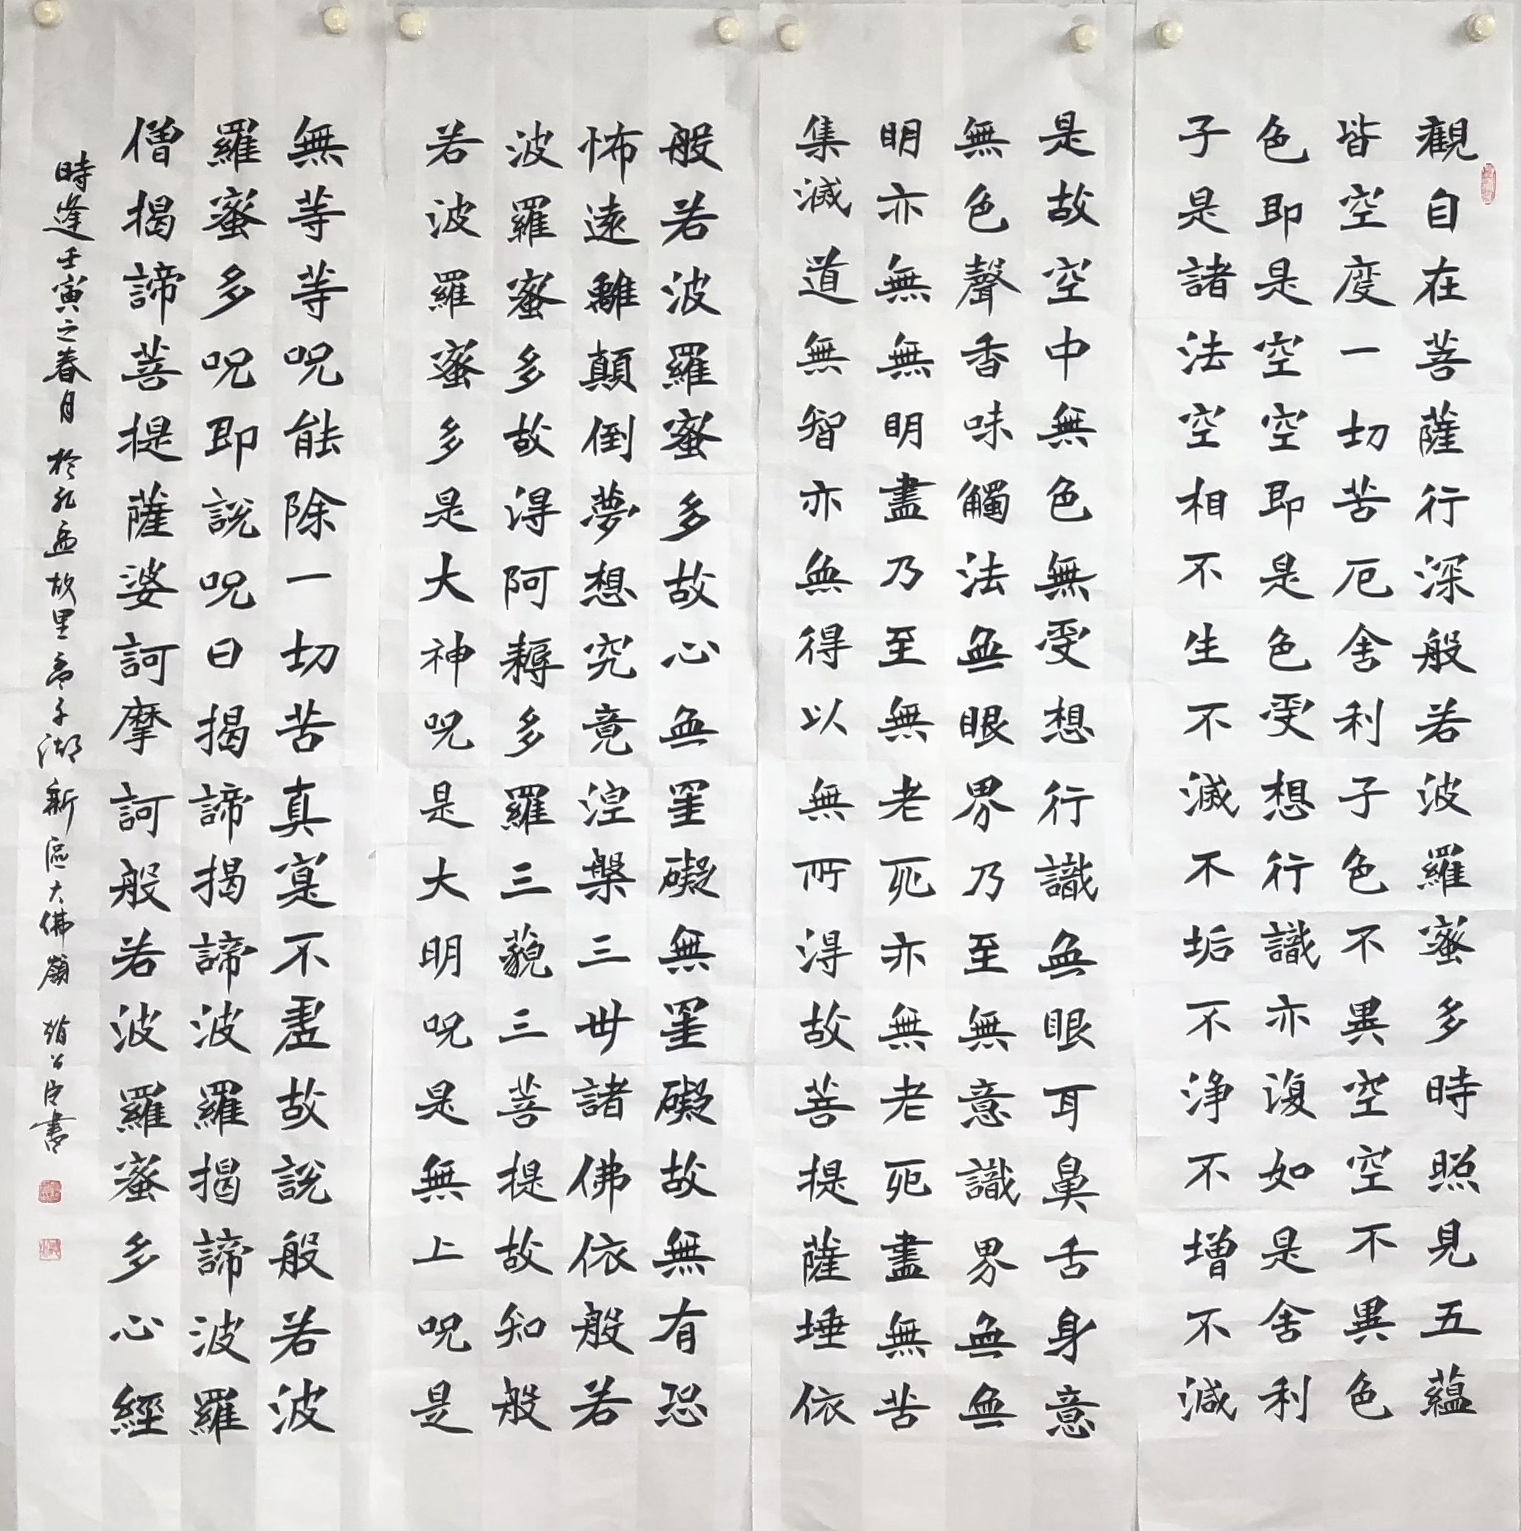 觀自在菩薩行深般若波羅蜜多時照見五蘊
皆空度一切苦厄舍利子色不異空空不異色
色即是空空即是色受想行識亦復如是舍利
子是諸法空相不生不滅不垢不淨不增不減
是故空中無色無受想行識無眼耳鼻舌身意
無色聲香味觸法無眼界乃至無意識界無無
明亦無無明盡乃至無老死亦無老死盡無苦
集滅道無智亦無得以無所得故菩提薩埵依
般若波羅蜜多故心無罣礙無罣礙故無有恐
怖遠離顛倒夢想究竟涅槃三世諸佛依般若
波羅蜜多故得阿耨多羅三藐三菩提故知般
若波羅蜜多是大神呪是大明呪是無上呪是
無等等呪能除一切苦真寔不虛故說般若波
羅蜜多呪即說呪曰揭諦揭諦波羅揭諦波羅
僧揭諦菩提薩婆訶摩訶般若波羅蜜多心經
時逢壬寅之春月於孔孟故里孟子湖新區大佛嶺 書